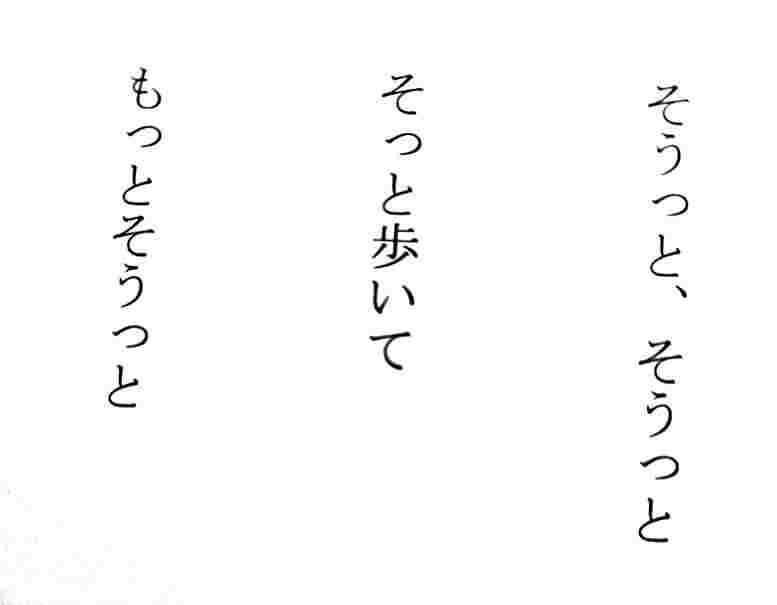 そうっと、そうっと
そっと歩いて
もっとそうっと